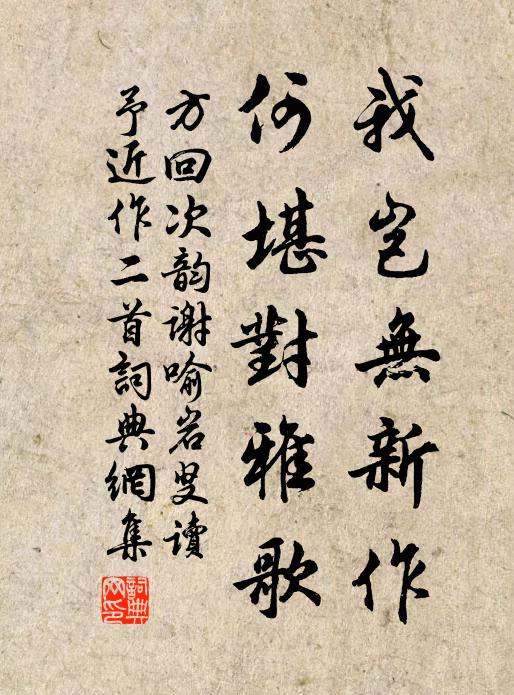 我岂無新作
何堪對雅歌
方回次韵谢喻岩叟讀
予近作二首詞典網集
詞典
网印